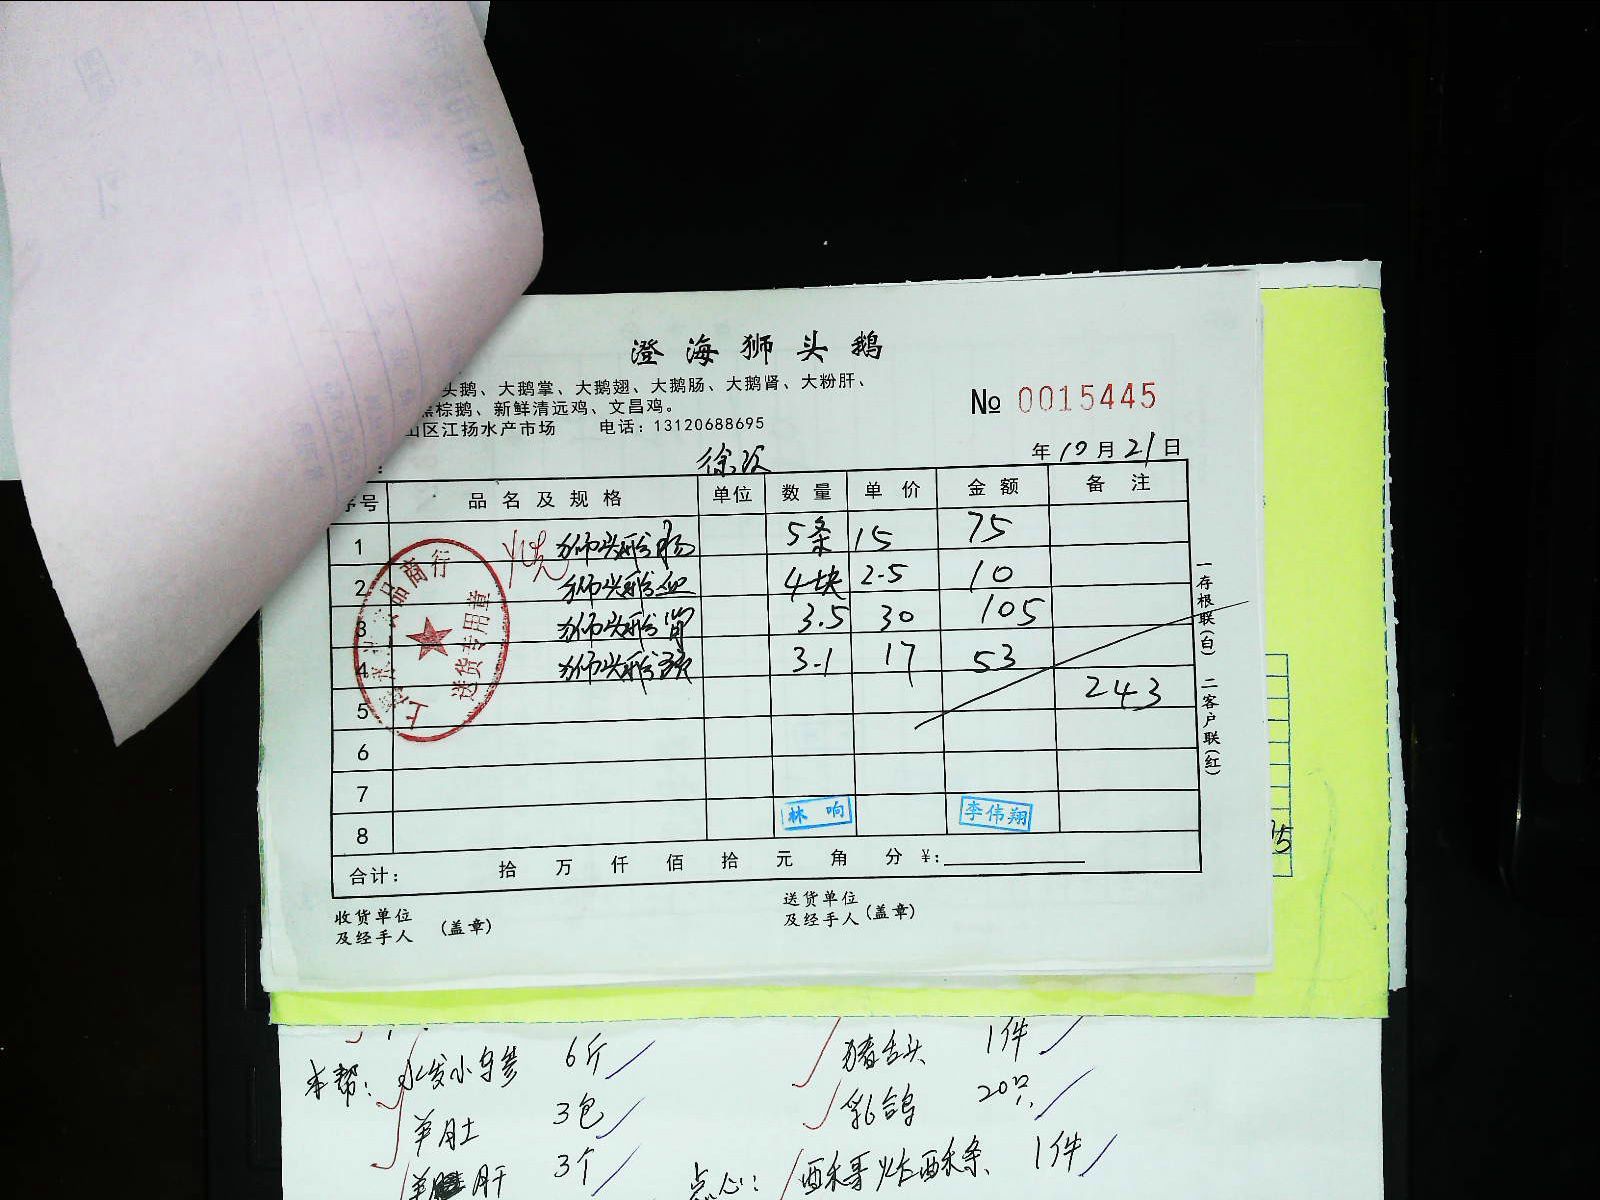 澄海狮头鹅
头鹅、大鹅掌、大鹅翅、大鹅肠、大鹅肾、大粉肝、
棕鹅、新鲜清远鸡、文昌鸡。
山区江扬水产市场 电话:13120688695
№ 0015445
年10月21日
序号 品名及规格 单位 数量 单价 金额 备注
1 狮头鹅肠 5条 15 75
2 狮头鹅血 4块 2.5 10
3 狮头鹅肾 3.5 30 105
4 狮头鹅头 3.1 17 53
5 243
6
7
8 林响 李伟翔
合计: 拾 万 仟 佰 拾 元 角 分 ¥:
收货单位
及经手人 (盖章)
送货单位
及经手人 (盖章)
一存根联(白) 二客户联(红)
品商行
送货专用章
本帮: 水发小乌参 6斤
羊肚 3包
羊肝 3个
猪舌头 1件
乳鸽 20只
点心: 1件